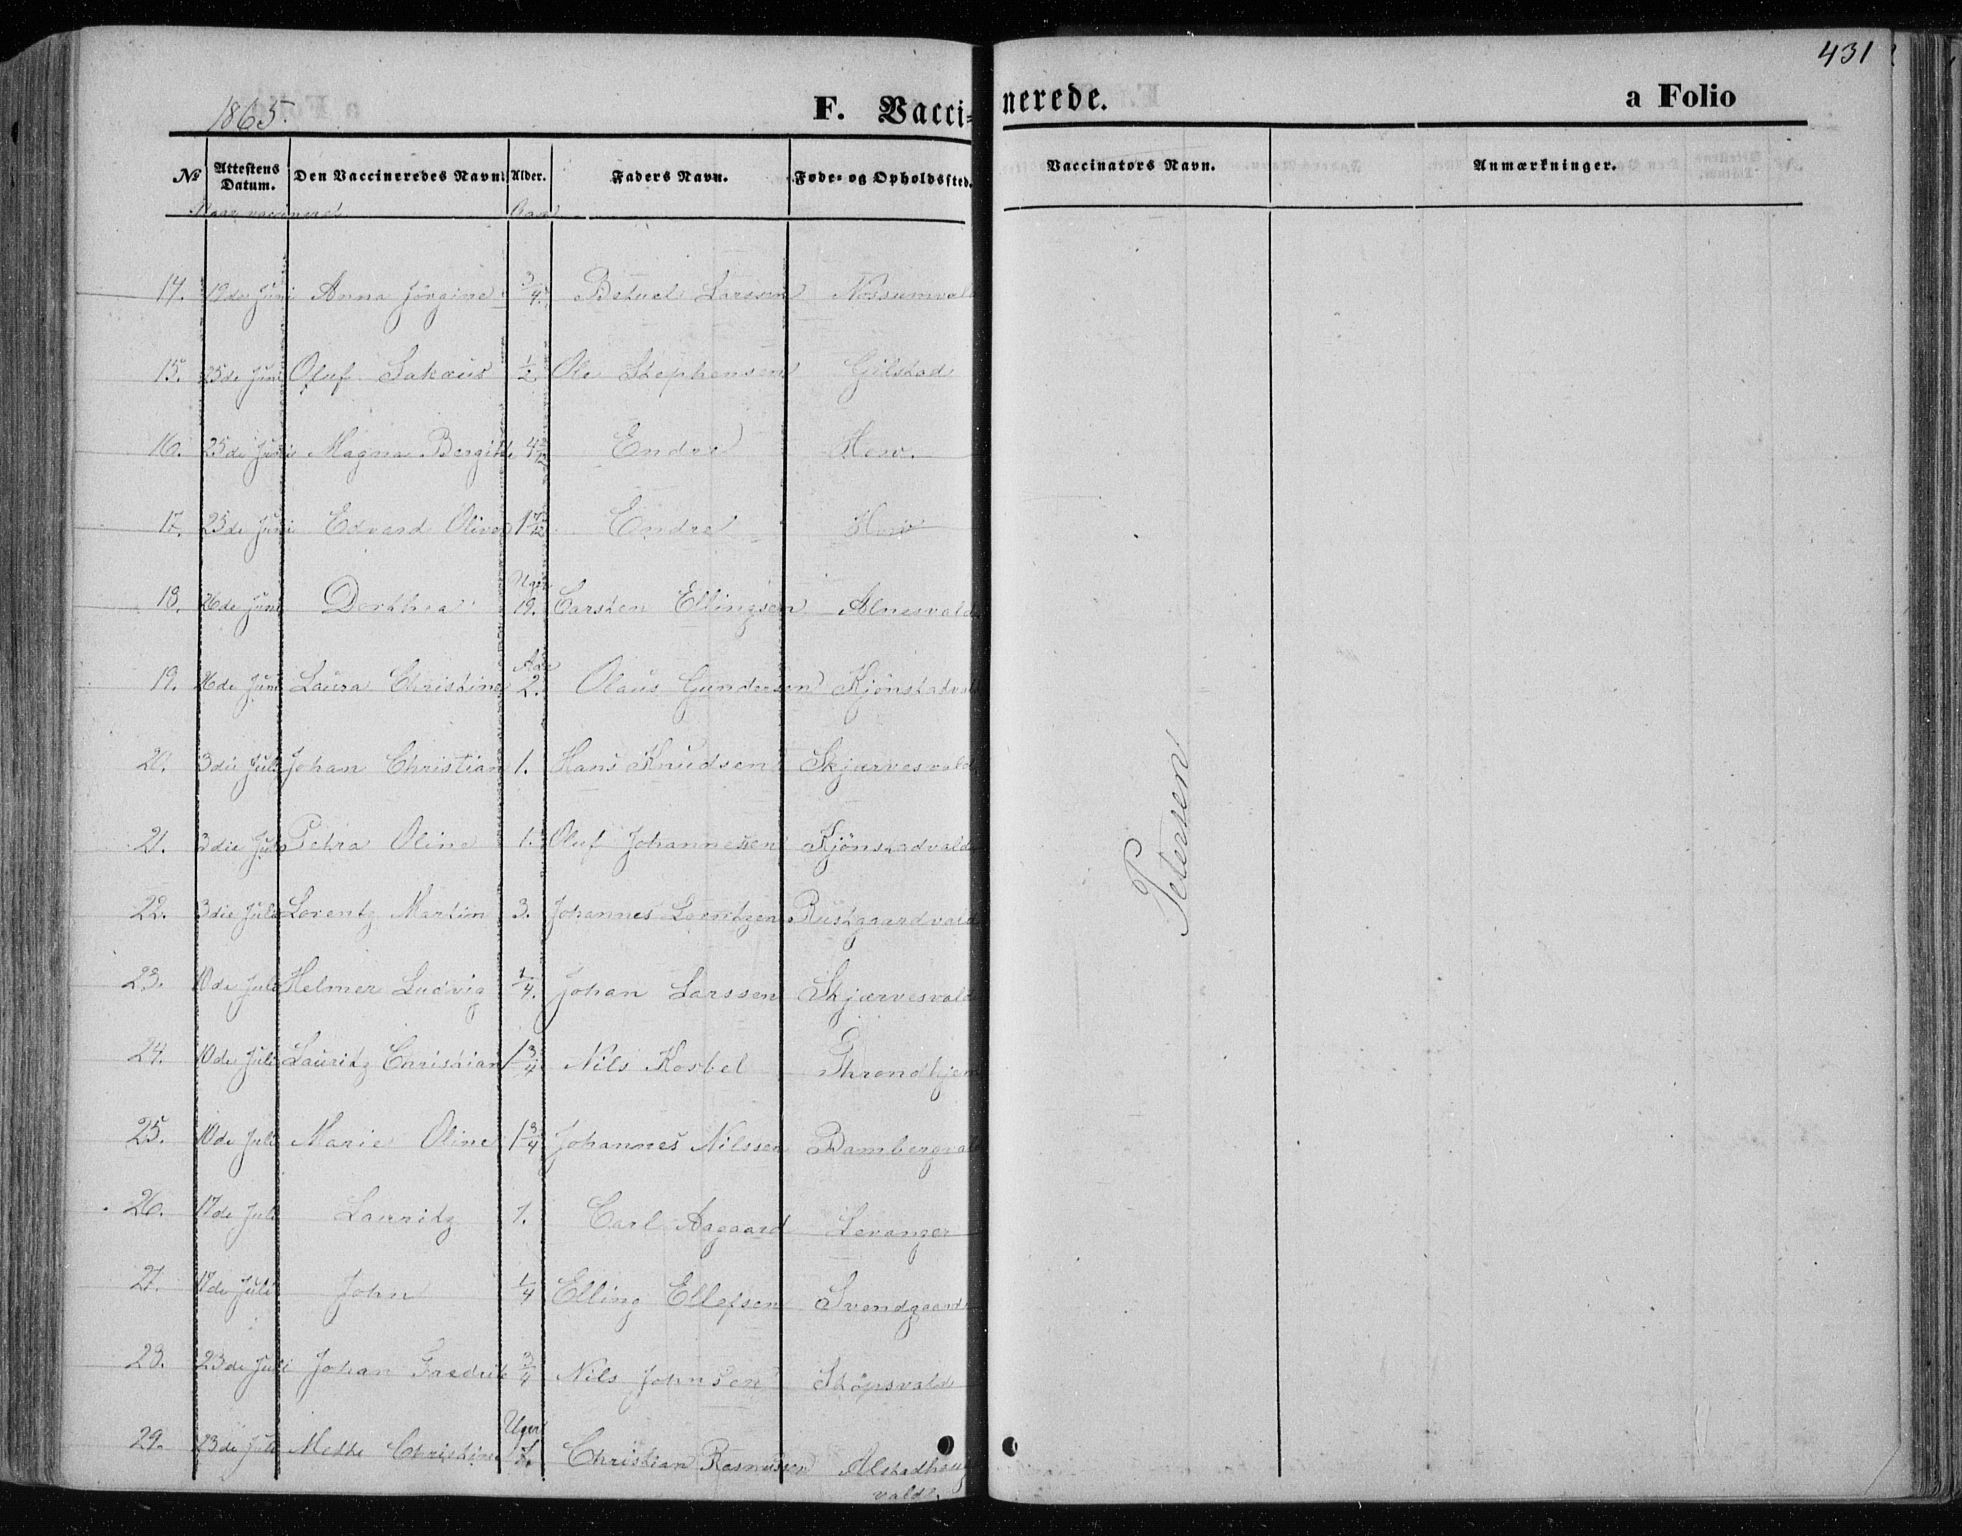 431
1865.
F. Vaccinerede.
a Folio
No Attestens Datum. Den Vaccineredes Navn. Alder. Faders Navn. Føde- og Opholdssted. Vaccinators Navn. Anmærkninger.
Naar vaccineret Aar
14. 19de Juni Anna Jörgine 3/4. Betuel Larssen Nossumvald
15. 25de Juni Oluf Sakæus 1/2 Ole Stephensen Gilstad
16. 25de Juni Magna Bergitte Endre How.
17. 25de Juni Edvard Oliver Endre How
18. 26de Juni Dorthea Uger 19. Carsten Ellingsen Alnesvald
19. 26de Juni Laura Christine Aar 2. Olaus Gundersen Kjönstadvald
20. 3die Juli Johan Christian 1. Hans Knudsen Skjærvesvald
21. 3die Juli Petra Oline 1. Oluf Johannessen Kjönstadvald
22. 3die Juli Lorentz Martin 3. Johannes Lorntzen Rustgaardvald
23. 10de Juli Helmer Ludvig 1/4. Johan Larssen Skjærvesvald
24. 10de Juli Lauritz Christian 1 3/4 Nils Korbel Throndhjem
25. 10de Juli Marie Oline 1 3/4 Johannes Nilssen Bambergvald
26. 17de Juli Lauritz 1. Carl Aagaard Levanger
27. 17de Juli John 1/4 Elling Ellefsen Svendgaard
28. 23de Juli Johan Fredrik 3/4 Nils Johnsen Sköpsvald
29. 23de Juli Mette Christine Uger 7. Christian Rasmussen Alstadhoug
valde.
Petersen